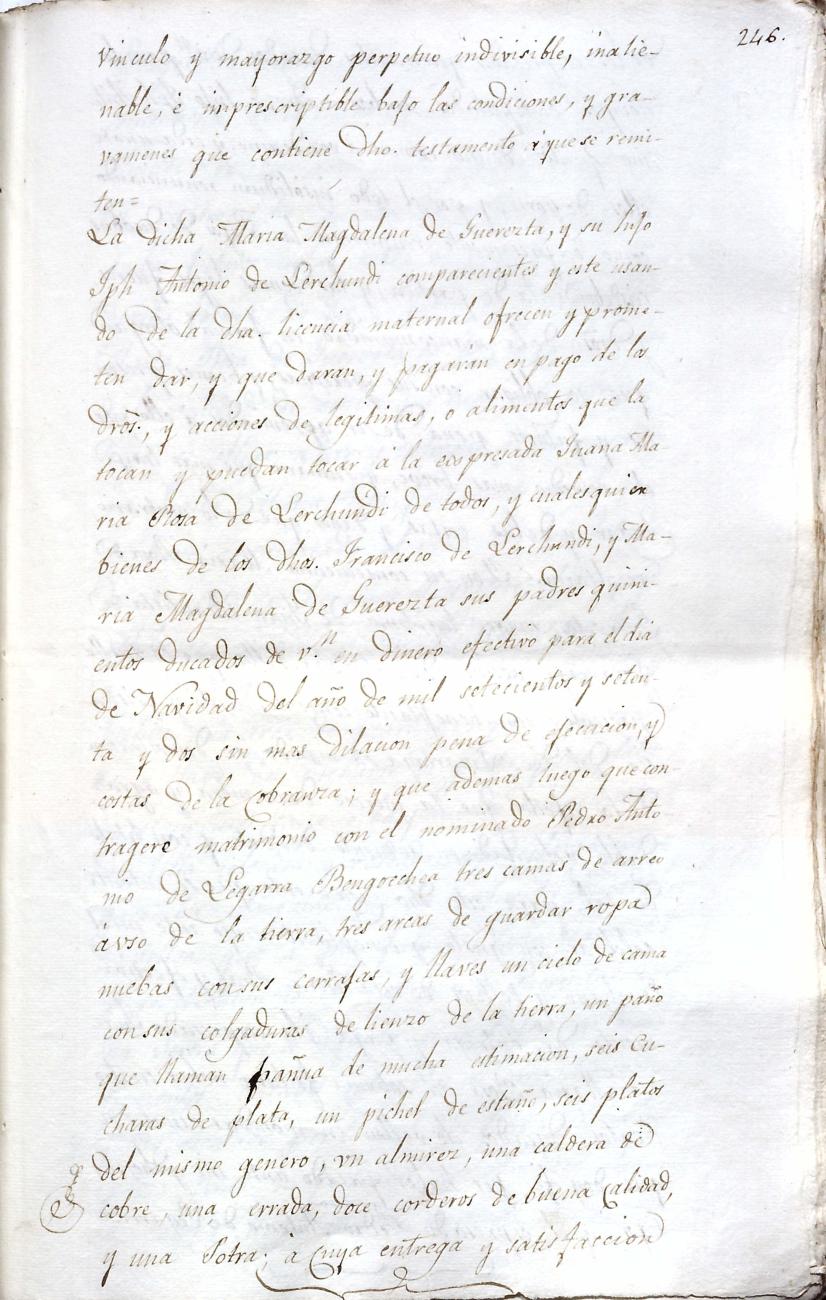 246.
vinculo y mayorazgo perpetuo indivisible, inalie-
nable, è imprescriptible bajo las condiciones, y gra-
vamenes que contiene dho. testamento á que se remi-
ten=
La dicha Maria Magdalena de Guerezta, y su hijo
Jph Antonio de Lerchundi comparecientes y este usan-
do de la dha. licencia maternal ofrecen y prome-
ten dar, y que daran, y pagarán en pago de los
dros., y acciones de legitimas, o alimentos que la
tocan y puedan tocar á la expresada Juana Ma-
ria Rosa de Lerchundi de todos, y cualesquier
bienes de los dhos. Francisco de Lerchundi, y Ma-
ria Magdalena de Guerezta sus padres quini-
entos ducados de v.n en dinero efectivo para el dia
de Navidad del año de mil setecientos y seten-
ta y dos sin mas dilacion pena de ejecucion, y
costas de la cobranza; y que ademas luego que con-
tragere matrimonio con el nominado Pedro Anto
nio de Legarra Bengoechea tres camas de arreo
á vso de la tierra, tres arcas de guardar ropa
nuebas con sus cerrajas, y llaves un cielo de cama
con sus colgaduras de lienzo de la tierra, un paño
que llaman pañua de mucha estimacion, seis cu-
charas de plata, un pichel de estaño, seis platos
del mismo genero, vn almirez, una caldera de
cobre, una errada, doce corderos de buena calidad,
y una Potra; à cuya entrega y satisfaccion